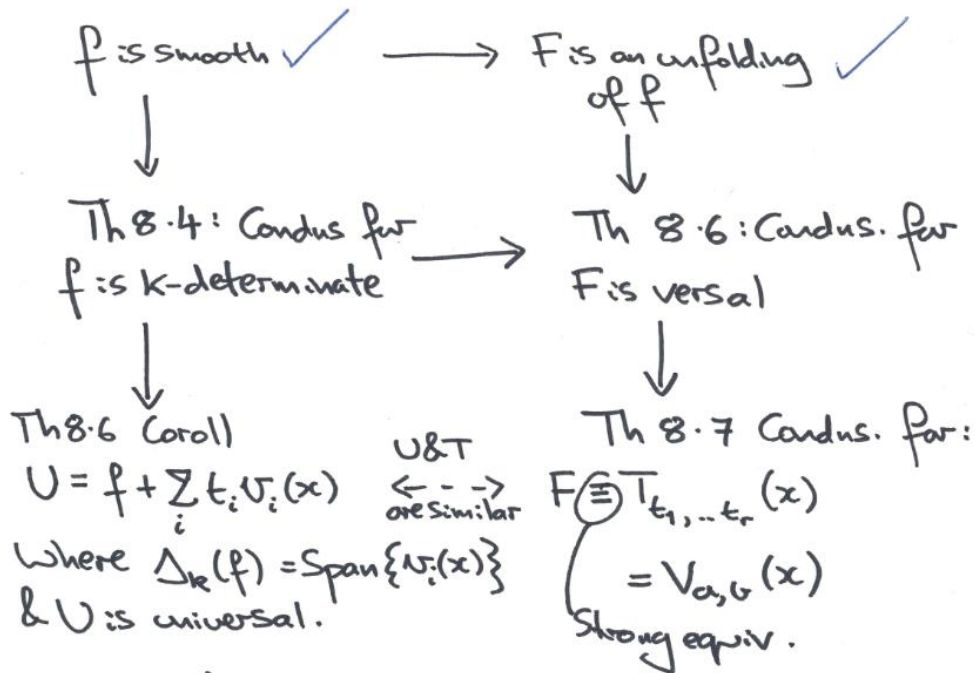 f is smooth ✓ → F is an unfolding ✓
of f
Th 8.4: Condns for
f is k-determinate
Th 8.6: Condns. for
F is versal
Th 8.6 Coroll
U = f + Σ_i t_i v_i(x)
where Δ_k(f) = Span{v_i(x)}
& U is universal.
U&T
are similar
Th 8.7 Condns. for:
F ≡ T_{t_1,..t_r}(x)
= V_{a,b}(x)
Strong equiv.